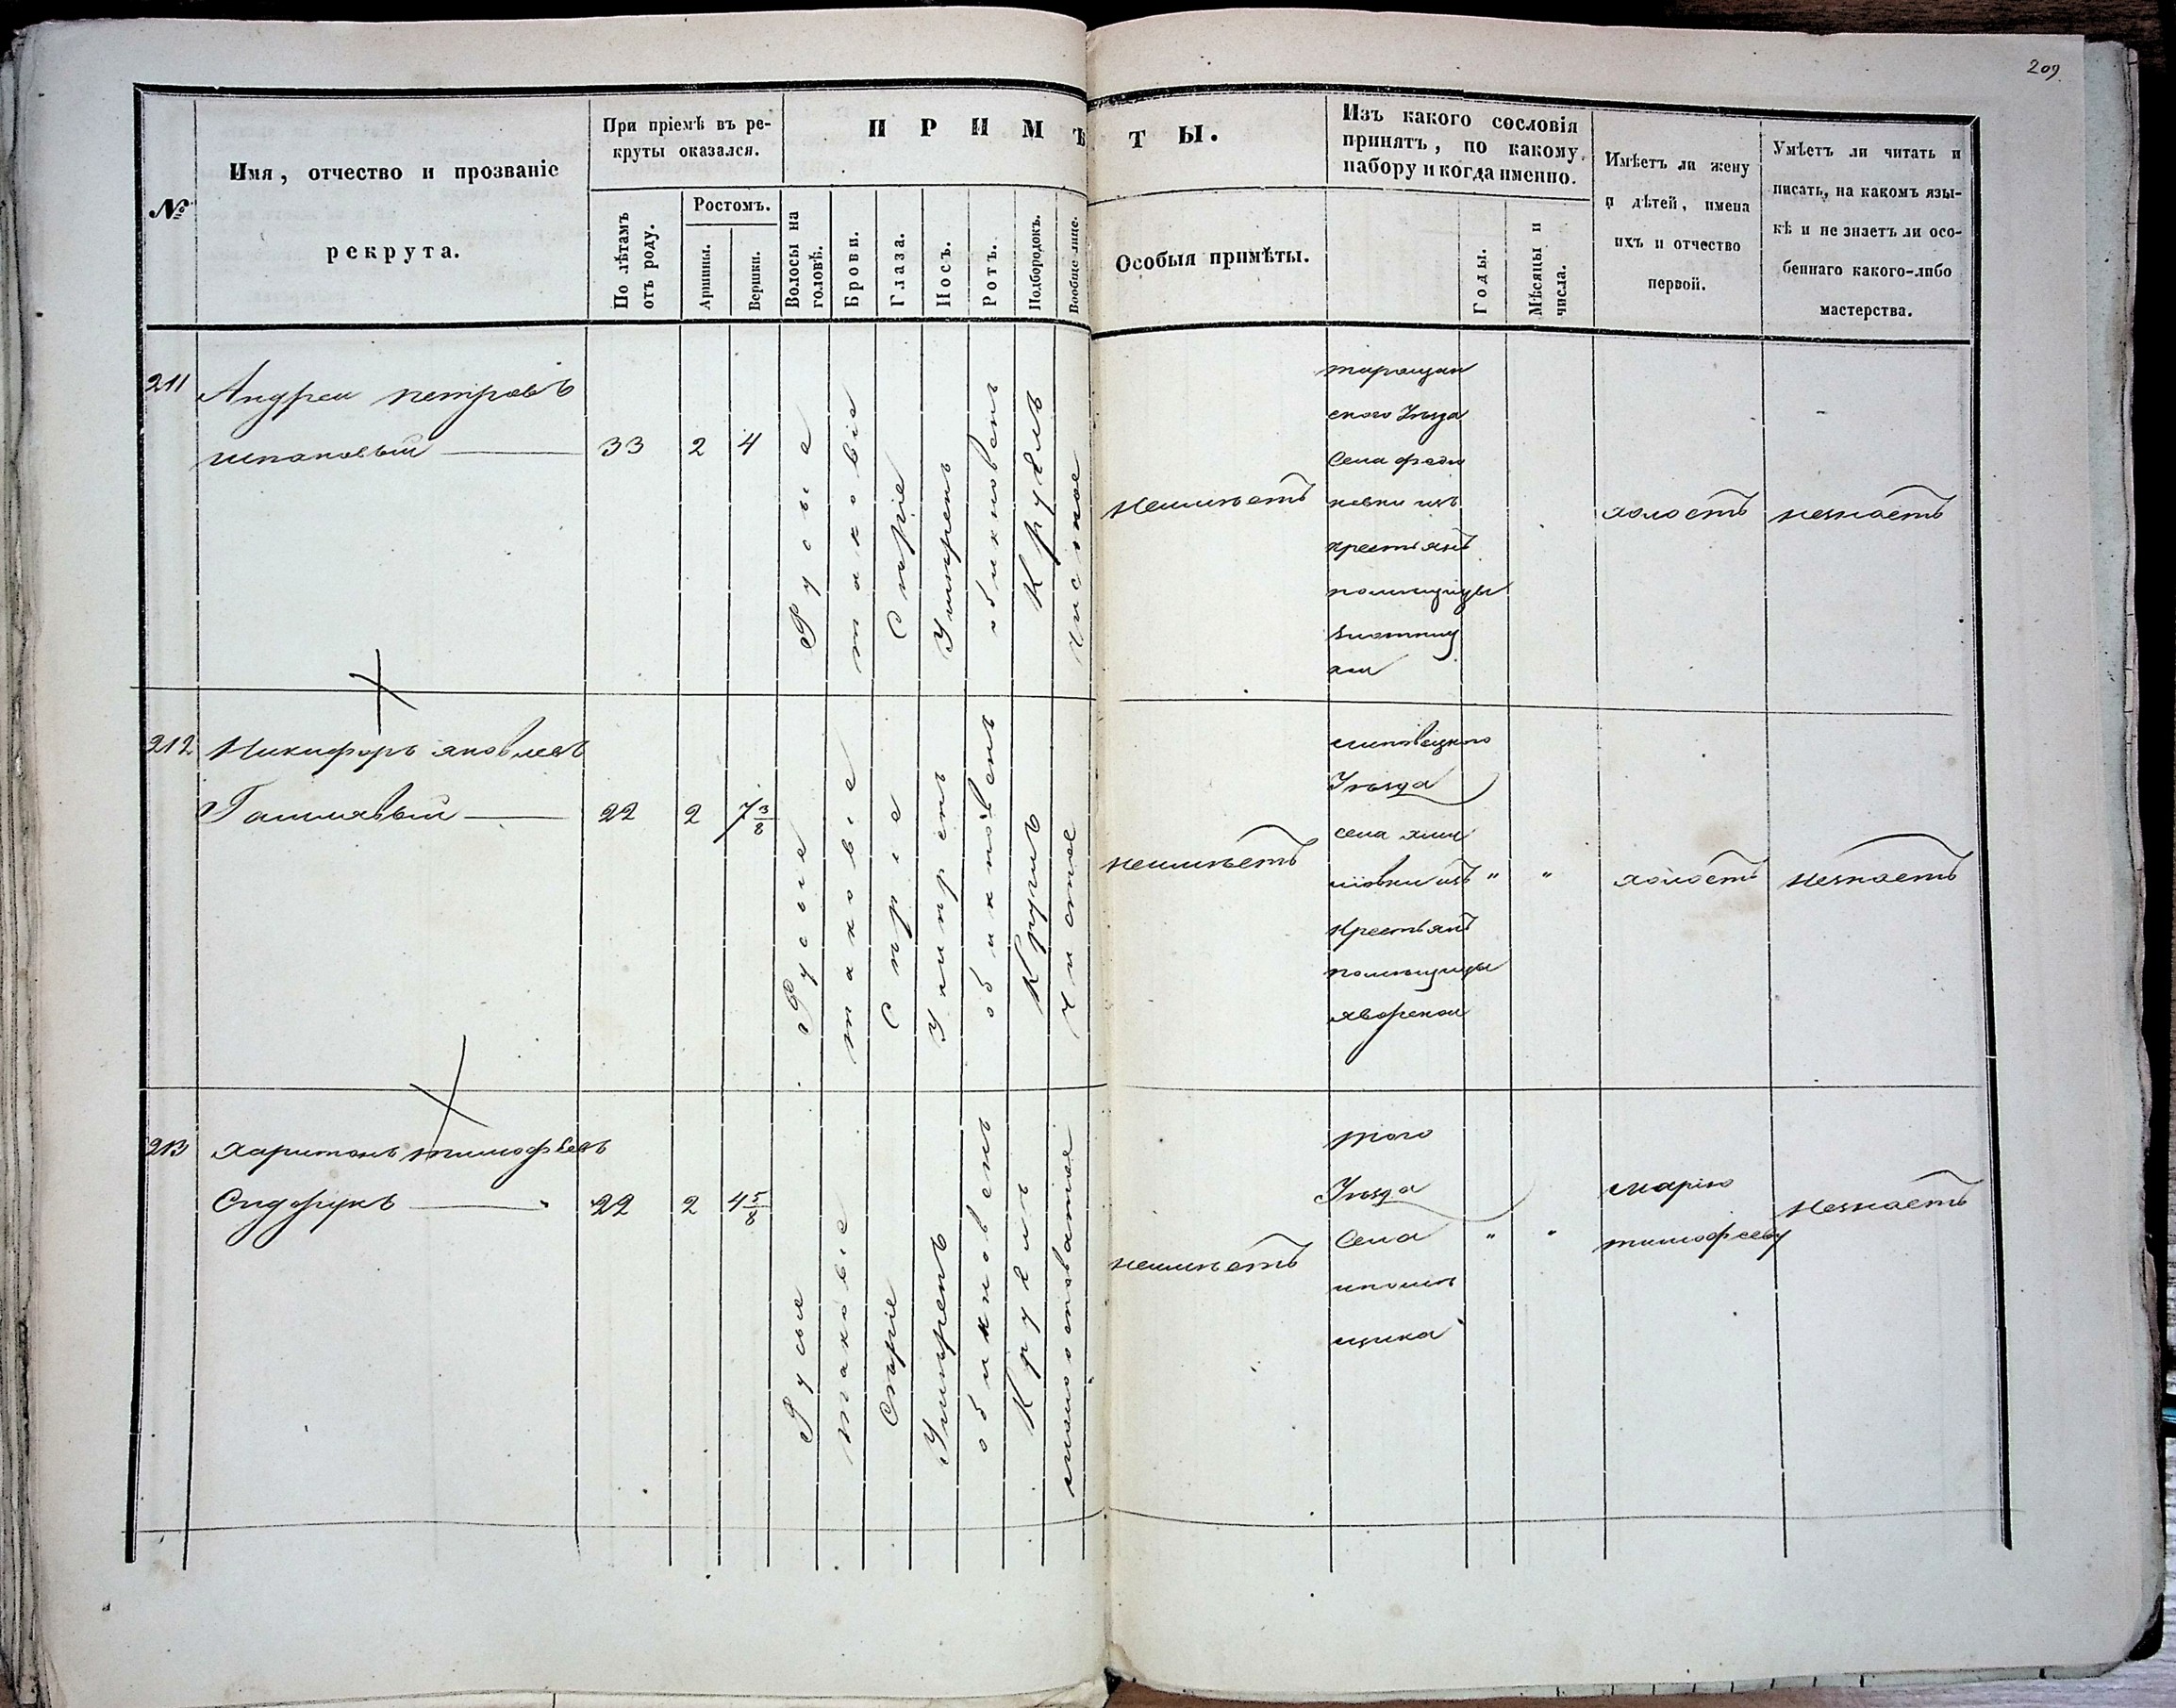 209
№
Имя, отчество и прозваніе
рекрута.
При пріемѣ въ ре-
круты оказался.
По лѣтамъ
отъ роду.
Ростомъ.
Аршины.
Вершки.
ПРИМѢТЫ.
Волосы на
головѣ.
Брови.
Глаза.
Носъ.
Ротъ.
Подбородокъ.
Вообще лице.
Особыя примѣты.
Изъ какого сословія
принятъ, по какому
набору и когда именно.
Годы.
Мѣсяцы и
числа.
Имѣетъ ли жену
и дѣтей, имена
ихъ и отчество
первой.
Умѣетъ ли читать и
писать, на какомъ язы-
кѣ и не знаетъ ли осо-
беннаго какого-либо
мастерства.
211
Андреи петровъ
33
2
4
Русые
таковіе
Серіе
Умѣренъ
обикновенъ
Круглъ
Чистое
неимѣетъ
таращан
ского Уѣзда
Села
изъ
крестьянъ
помещицы
холостъ
незнаетъ
212
Никифоръ яковлевъ
22
2
7 3/8
Русые
таковіе
Серіе
Умѣренъ
обикновенъ
Круглъ
Чистое
неимѣетъ
липовецкого
Уѣзда
села
изъ " "
крестьянъ
помѣщицы
яворской
холостъ
незнаетъ
213
харитонъ тимофѣевъ
Сидорукъ
22
2
4 5/8
Русые
таковіе
Серіе
Умѣренъ
обикновенъ
Круглъ
неимѣетъ
того
Уѣзда
Села " "
ипомѣ
щика
марію
тимофееву
незнаетъ